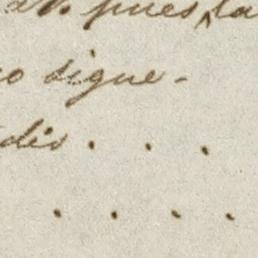 pues, la
o sigue-
dis . . .
. . . .